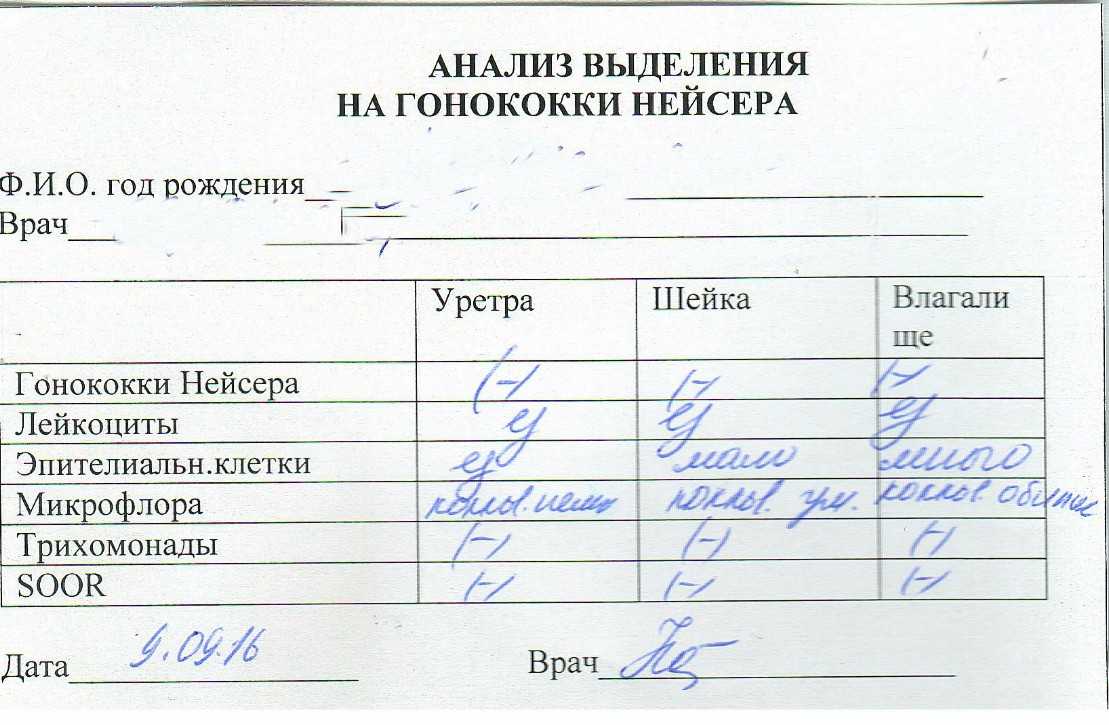 АНАЛИЗ ВЫДЕЛЕНИЯ
НА ГОНОКОККИ НЕЙСЕРА
Ф.И.О. год рождения
Врач
Уретра Шейка Влагали
ще
Гонококки Нейсера (-) (-) (-)
Лейкоциты ед ед ед
Эпителиальн.клетки ед мало много
Микрофлора кокков. кокков. кокков.
Трихомонады (-) (-) (-)
SOOR (-) (-) (-)
Дата 9.09.16 Врач